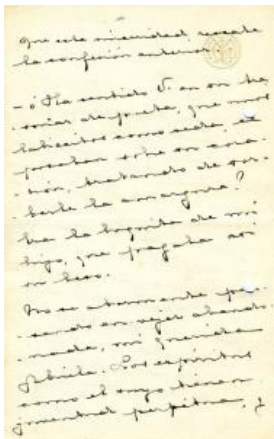 que esta sinceridad rescate
la confesión anterior.
- ¿Ha sentido V. en un
de poeta, que unos
labiecitos como seda, se
posaban sobre su cora-
zón, tratando de sor-
berle la amargura?
Era la boquita de mi
hijo, que pagaba así
un beso.
No se atormente pen-
sando en vejez abando-
nada, mi querida
Gabriela. Los espíritus
como el suyo tienen
juventud perpetua, y